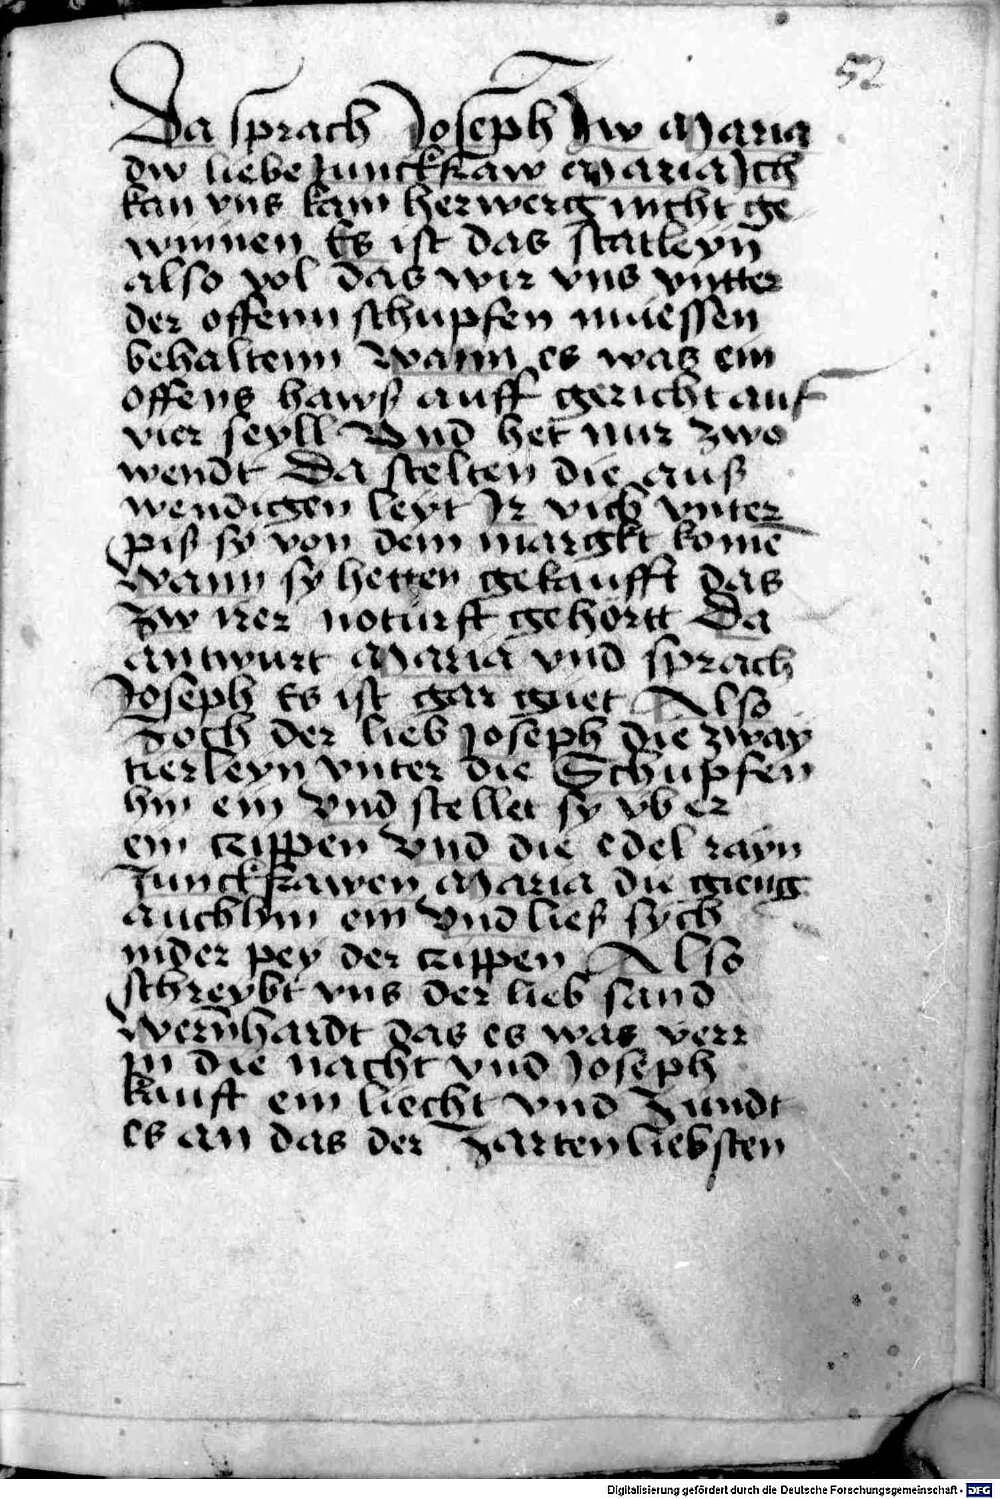 52
Da sprach Joseph Zw Maria
dw liebe Junckfraw Maria Ich
kan vns kain herwerg nicht ge
winnen Es ist das statleyn
also vol das wir vns vntter
der offenn schupfen müessen
behaltenn Wann es was ein
offens hawß auff gericht auf
vier seyll Vnd het nur zwo
wendt Da stelten die auß
wendigen leyt Ir vich vnter
piß sy von dem margkt komē
Wann sy hetten gekaufft das
Zw irer noturft gehörtt Da
antwurt Maria vnd sprach
Joseph Es ist gar guet Also
Zoch der lieb Joseph die zway
tierleyn vnter die Schupfen
hin ein vnd stellet sy vber
ein crippen vnd die edel rayn
Junckfrawen Maria die gieng
auch hin ein vnd ließ sych
nider pey der crippen Also
schreybt vns der lieb sand
Wernhardt das es was verr
in die nacht vnd Joseph
kauft ein liecht vnd Zundt
es an das der Zarten liebsten
Digitalisierung gefördert durch die Deutsche Forschungsgemeinschaft - DFG